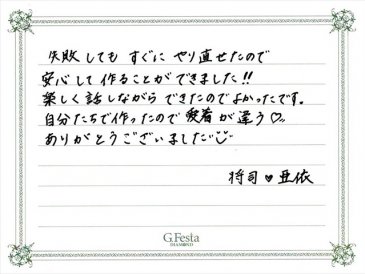 失敗しても すぐに やり直せたので
安心して作ることができました!!
楽しく話しながら できたのでよかったです。
自分たちで作ったので 愛着が違う♡。
ありがとうございました☺
将司 ♥ 亜依
G.Festa
DIAMOND